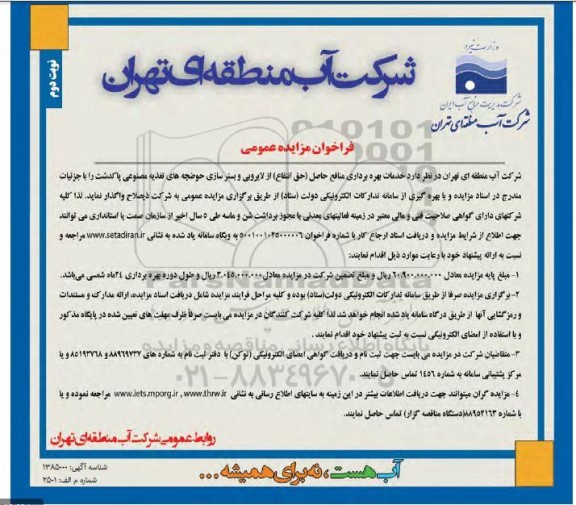 وزارت نیرو
شرکت مدیریت منابع آب ایران
شرکت آب منطقه‌ای تهران
شرکت آب منطقه‌ای تهران
نوبت دوم
فراخوان مزایده عمومی
شرکت آب منطقه ای تهران در نظر دارد خدمات بهره برداری منافع حاصل (حق انتفاع) از لایروبی و بستر سازی حوضچه های تغذیه مصنوعی پاکدشت را با جزئیات
مندرج در اسناد مزایده و با بهره گیری از سامانه تدارکات الکترونیکی دولت (ستاد) از طریق برگزاری مزایده عمومی به شرکت ذیصلاح واگذار نماید. لذا کلیه
شرکتهای دارای گواهی صلاحیت فنی و مالی معتبر در زمینه فعالیتهای معدنی یا مجوز برداشت شن و ماسه طی ۵ سال اخیر از سازمان صمت یا استانداری می توانند
جهت اطلاع از شرایط مزایده و دریافت اسناد ارجاع کار با شماره فراخوان ۵۰۰۱۰۰۱۰۲۵۰۰۰۰۰۶ به وبگاه سامانه یاد شده به نشانی www.setadiran.ir مراجعه و
نسبت به ارائه پیشنهاد خود با رعایت موارد ذیل اقدام نمایند:
۱- مبلغ پایه مزایده معادل ۶۰,۹۰۰,۰۰۰,۰۰۰ ریال و مبلغ تضمین شرکت در مزایده معادل ۳,۰۴۵,۰۰۰,۰۰۰ ریال و طول دوره بهره برداری ۲۴ ماه شمسی می‌باشد.
۲- برگزاری مزایده صرفا از طریق سامانه تدارکات الکترونیکی دولت(ستاد) بوده و کلیه مراحل فرایند مزایده شامل دریافت اسناد مزایده، ارائه مدارک و مستندات
و رمزگشایی آنها از طریق درگاه سامانه یاد شده انجام خواهد شد لذا کلیه شرکت کنندگان در مزایده می بایست صرفاً ظرف مهلت های تعیین شده در پایگاه مذکور
و با استفاده از امضای الکترونیکی نسبت به ثبت پیشنهاد خود اقدام نمایند .
۳- متقاضیان شرکت در مزایده می بایست جهت ثبت نام و دریافت گواهی امضای الکترونیکی (توکن) با دفتر ثبت نام به شماره های ۸۸۹۶۹۷۳۷ و ۸۵۱۹۳۷۶۸ و یا
مرکز پشتیبانی سامانه به شماره ۱۴۵۶ تماس حاصل نمایند.
۴- مزایده گران میتوانند جهت دریافت اطلاعات بیشتر در این زمینه به سایتهای اطلاع رسانی به نشانی www.thrw.ir ، www.iets.mporg.ir مراجعه نموده و یا
با شماره ۸۸۹۵۲۱۶۳(دستگاه مناقصه گزار) تماس حاصل نمایند.
روابط عمومی شرکت آب منطقه‌ای تهران
آب هست، نه برای همیشه ...
شناسه آگهی: ۱۳۸۵۰۰۰
شماره م الف: ۲۵۰۱
پایگاه اطلاع رسانی مناقصه و مزایده
۰۲۱-۸۸۳۴۹۶۷۰-۵